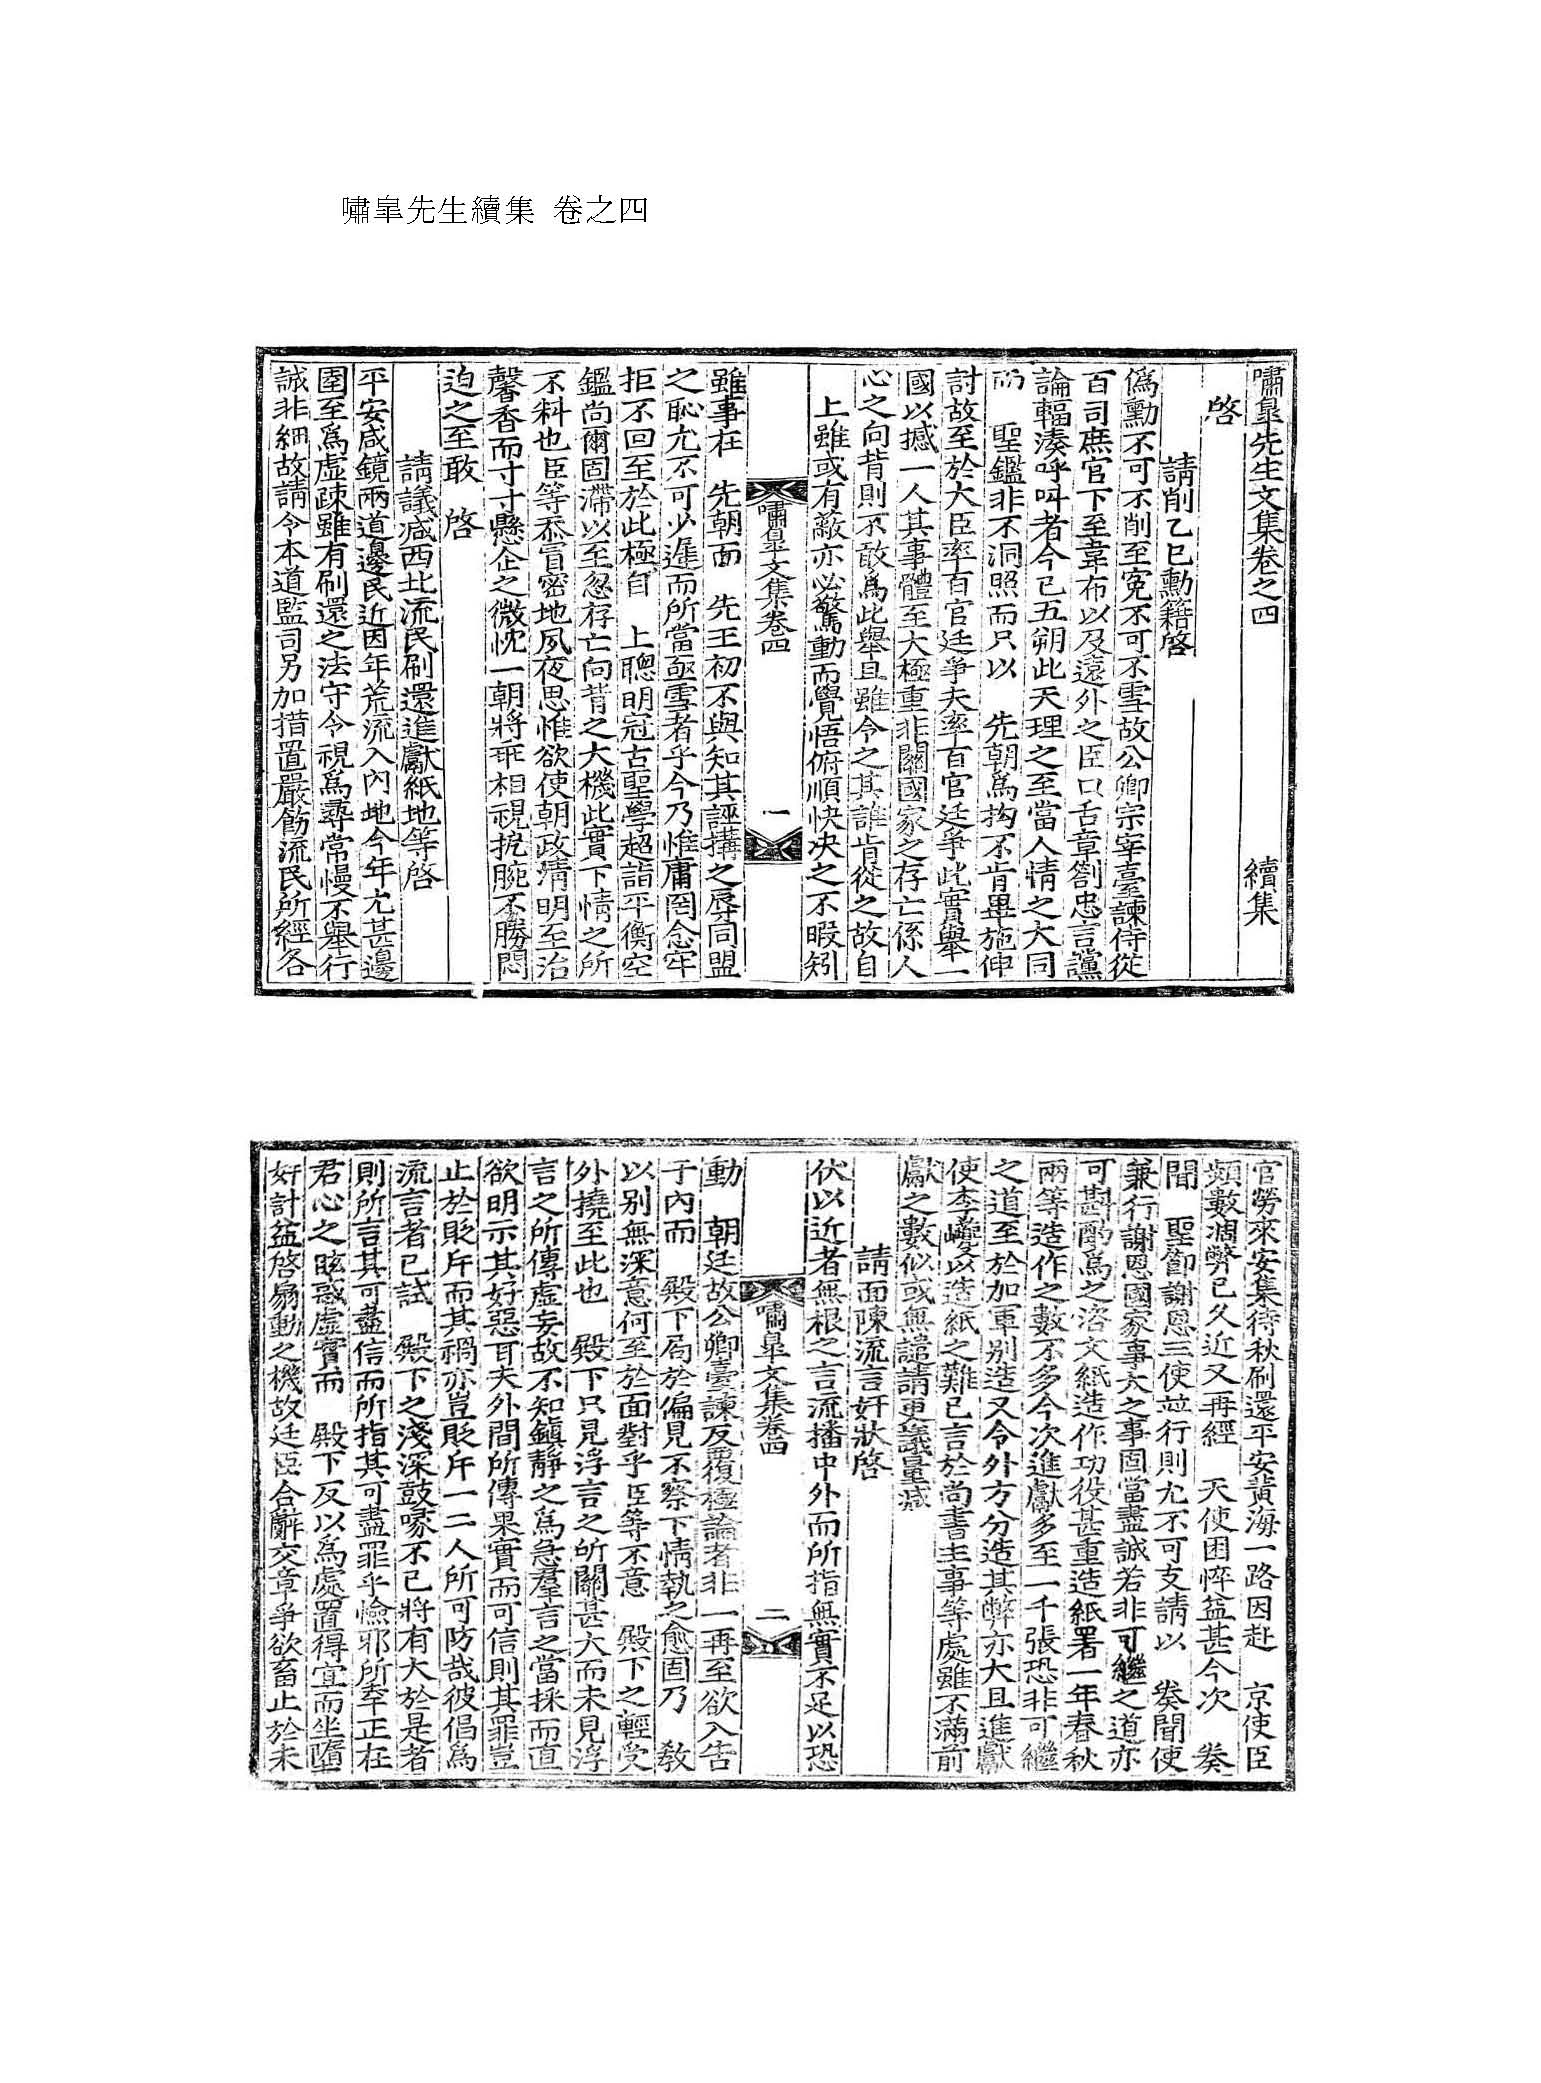 嘯皐先生續集 卷之四
嘯皐先生文集卷之四 續集
啓
請削乙巳勳籍啓
僞勳不可不削至寃不可不雪故公卿宗宰臺諫侍從
百司庶官下至韋布以及遠外之臣口舌章劄忠言讜
論輻湊呼呌者今已五朔此天理之至當人情之大同
而 聖鑑非不洞照而只以 先朝爲拘不肯畢施伸
討故至於大臣率百官廷爭夫率百官廷爭此實擧一
國以撼一人其事體至大極重非關國家之存亡係人
心之向背則不敢爲此擧且雖令之其誰肯從之故自
上雖或有蔽亦必驚動而覺悟俯順快决之不暇矧
嘯皐文集卷四 一
雖事在 先朝而 先王初不與知其誣搆之辱同盟
之恥尤不可少遲而所當亟雪者乎今乃惟庸罔念牢
拒不回至於此極自 上聰明冠古聖學超詣平衡空
鑑尚爾固滯以至忽存亡向背之大機此實下情之所
不料也臣等忝冒密地夙夜思惟欲使朝政淸明至治
馨香而寸寸懸企之微忱一朝將乖相視扼腕不勝悶
迫之至敢 啓
請議减西北流民刷還進獻紙地等啓
平安咸鏡兩道邊民近因年荒流入內地今年尤甚邊
圉至爲虛疎雖有刷還之法守令視爲尋常慢不擧行
誠非細故請令本道監司另加措置嚴飭流民所經各
官勞來安集待秋刷還平安黃海一路因赴 京使臣
頻數凋弊已久近又再經 天使困悴益甚今次 奏
聞 聖節謝恩三使並行則尤不可支請以 奏聞使
兼行謝恩國家事大之事固當盡誠若非可繼之道亦
可斟酌爲之咨文紙造作功役甚重造紙署一年春秋
兩等造作之數不多今次進獻多至一千張恐非可繼
之道至於加軍别造又令外方分造其弊亦大且進獻
使李巙以造紙之難已言於尚書主事等處雖不滿前
獻之數似或無譴請更議量减
請面陳流言奸狀啓
伏以近者無根之言流播中外而所指無實不足以恐
嘯皐文集卷四 二
動 朝廷故公卿臺諫反覆極論者非一再至欲入告
于內而 殿下局於偏見不察下情執之愈固乃 敎
以别無深意何至於面對乎臣等不意 殿下之輕受
外撓至此也 殿下只見浮言之所關甚大而未見浮
言之所傳虛妄故不知鎭靜之爲急羣言之當採而直
欲明示其好惡耳夫外間所傳果實而可信則其罪豈
止於貶斥而其禍亦豈貶斥一二人所可防哉彼倡爲
流言者已試 殿下之淺深鼓喙不已將有大於是者
則所言其可盡信而所指其可盡罪乎憸邪所幸正在
君心之眩惑虛實而 殿下反以爲處置得宜而坐墮
奸計益啓易動之機故廷臣合辭交章爭欲畜止於未